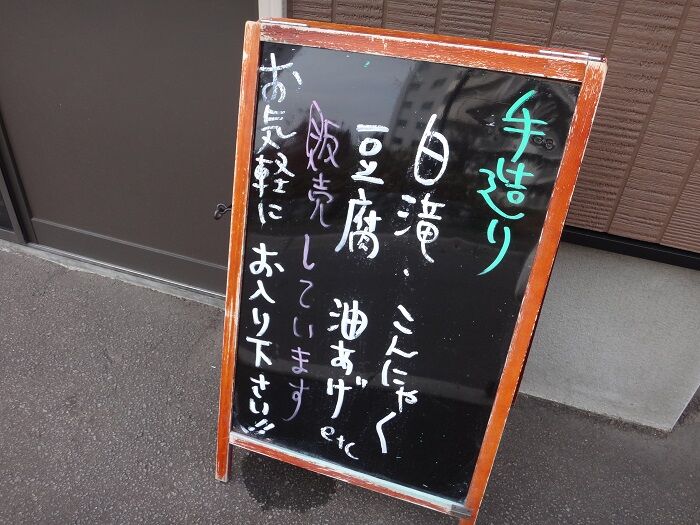 手造り
白滝・こんにゃく
豆腐 油あげ etc
販売しています
お気軽にお入り下さい!!